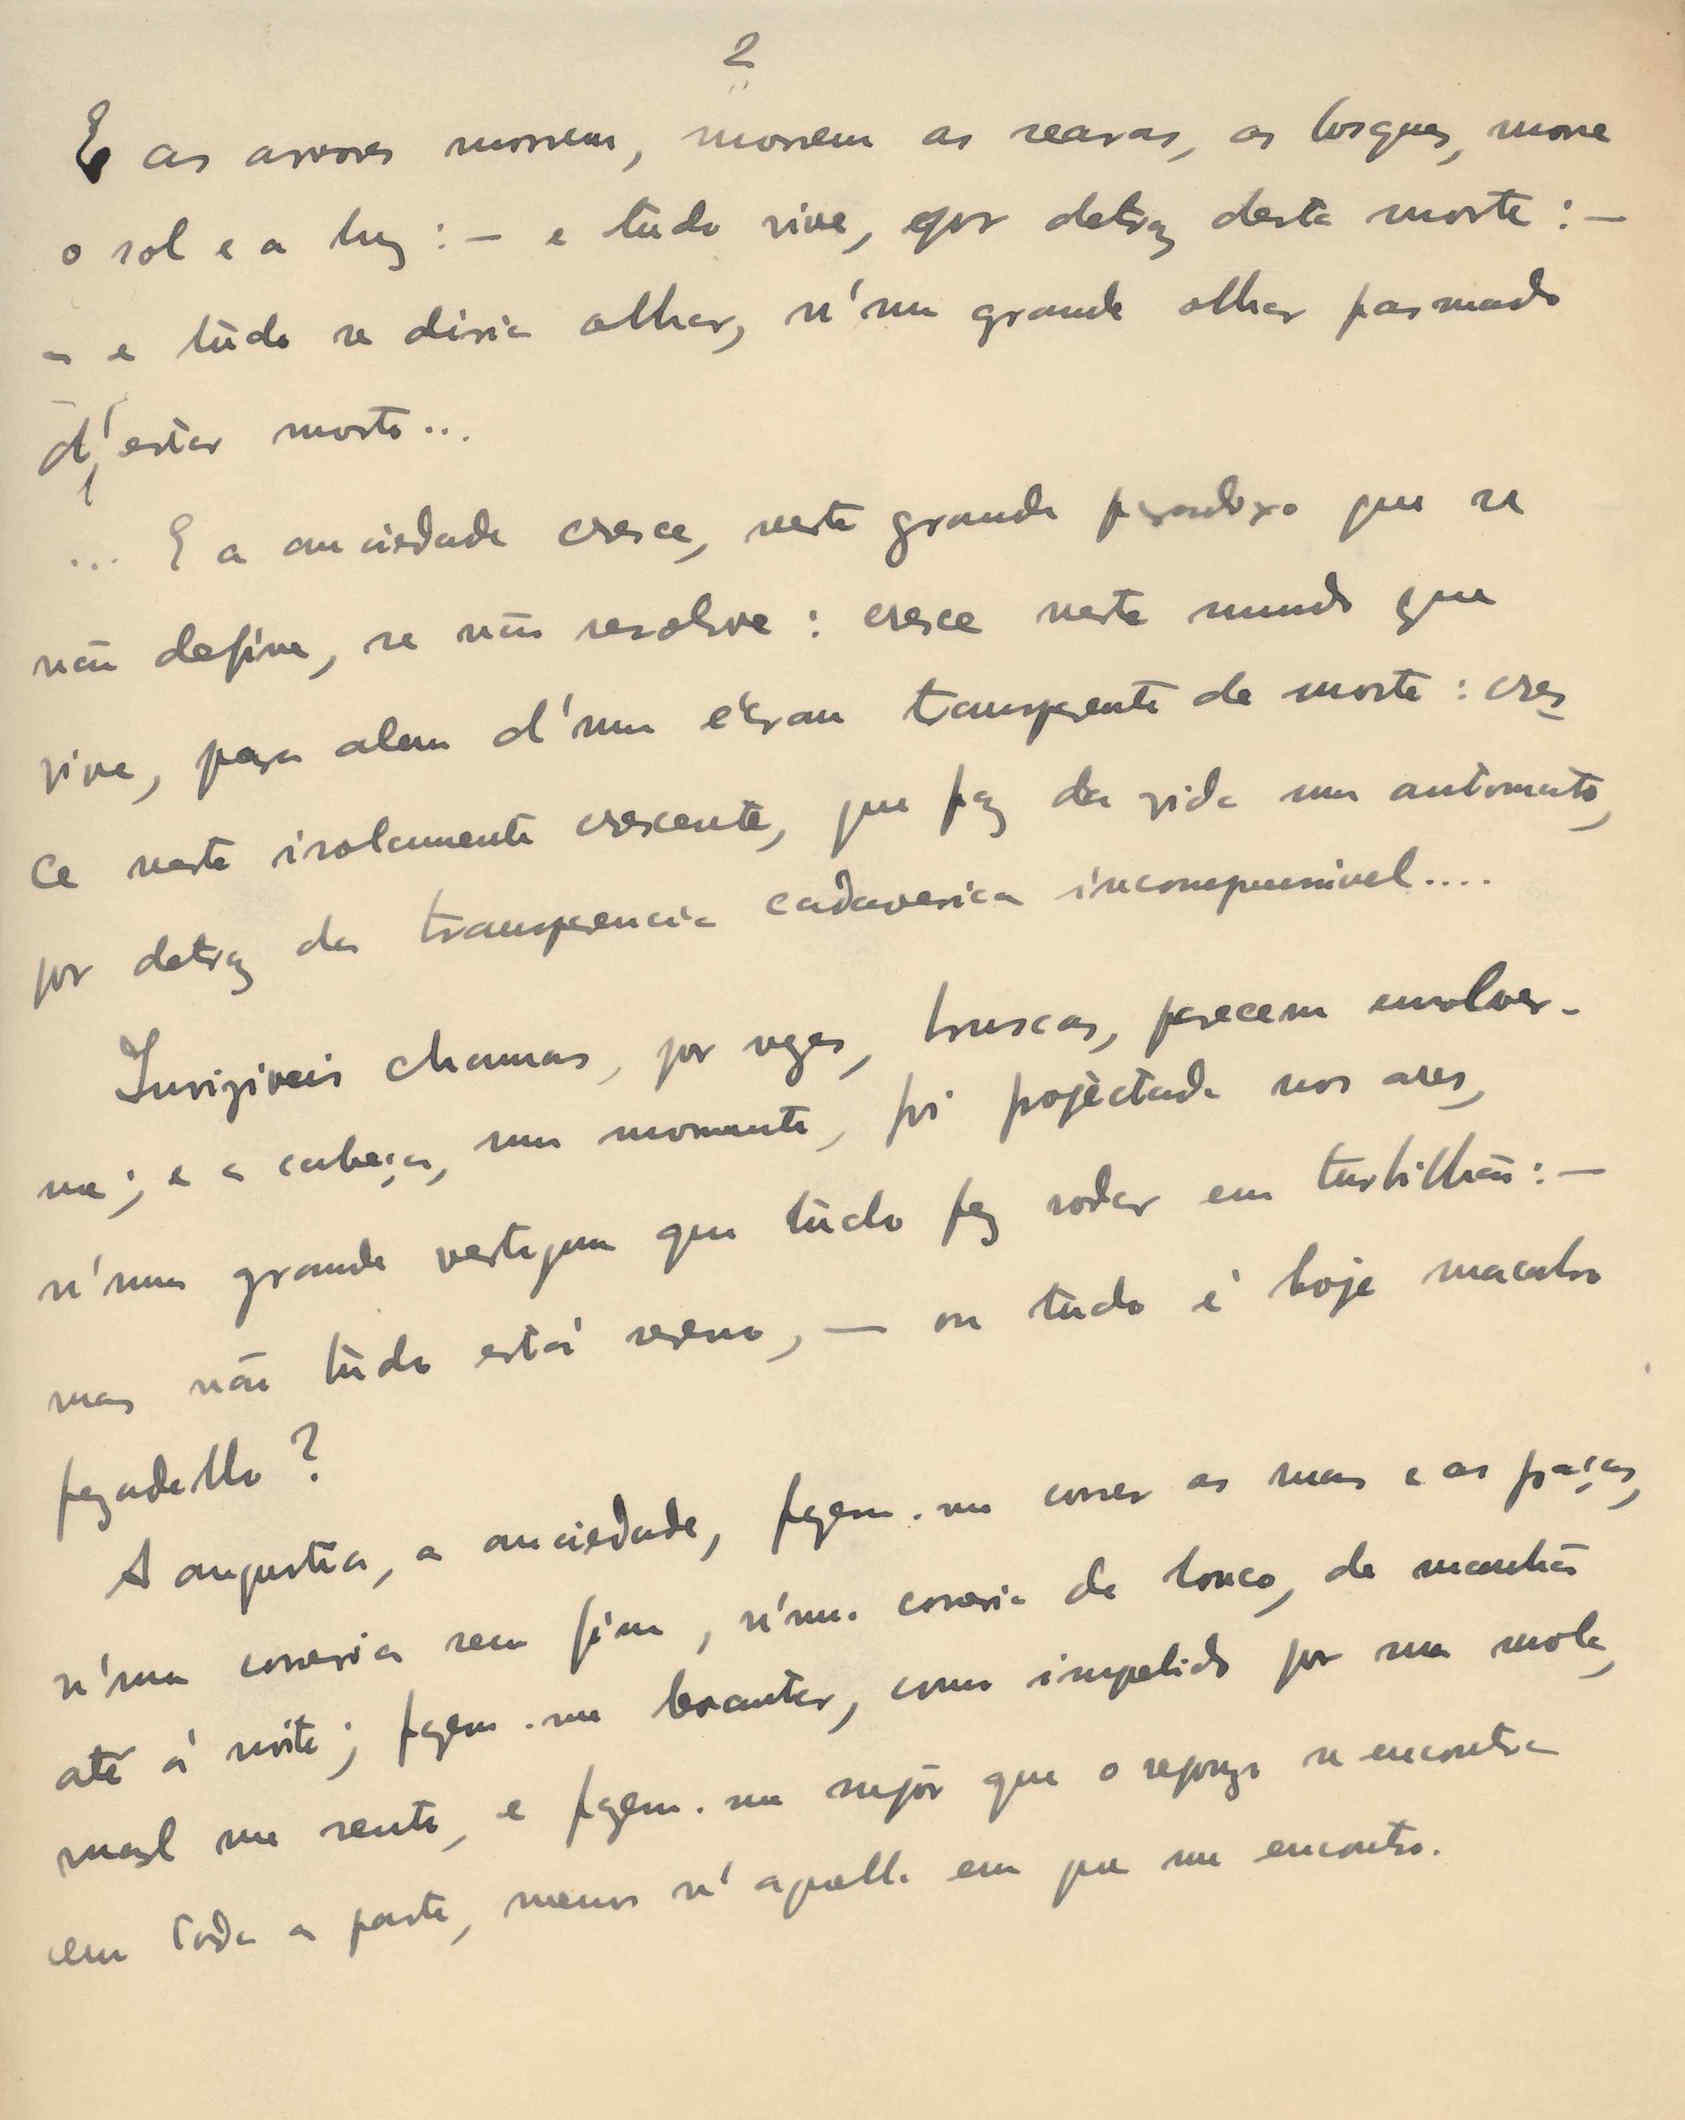 2
E as arvores morrem, morrem as searas, os bosques, morre
o sol e a luz : — e tudo vive, por detraz desta morte : —
e tudo se diria olhar, n'um grande olhar pasmado
d'estar morto...
... E a anciedade cresce, neste grande paradoxo que se
não define, se não resolve : cresce neste mundo que
vive, para alem d'um écran transparente de morte : cres
ce neste isolamento crescente, que faz da vida um automato,
por detraz da transparencia cadaverica incompreensivel....
Inviziveis chamas, por vezes, bruscas, parecem envolver-
me ; e a cabeça, um momento, foi projèctada nos ares,
n'uma grande vertigem que tùdo fez rodar em turbilhão : —
mas não tùdo está sereno, — ou tùdo é hoje macabro
pezadello ?
A angustia, a anciedade, fazem-me correr as ruas e as praças,
n'uma correria sem fim, n'uma correria de louco, de manhã
até á noite ; fazem-me levantar, como impelido por uma mola,
mal me sento, e fazem-me supôr que o repouzo se encontra
em toda a parte, menos n'aquella em que me encontro.